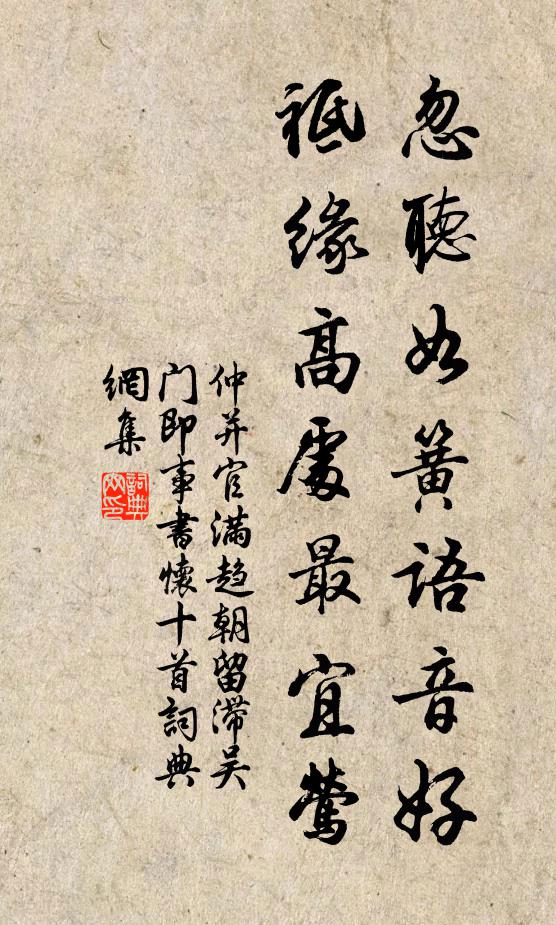 忽聽如簧語音好
祗緣高處最宜鶯
仲并官滿趋朝留滞吴
门即事書懷十首詞典
網集
詞典
网印